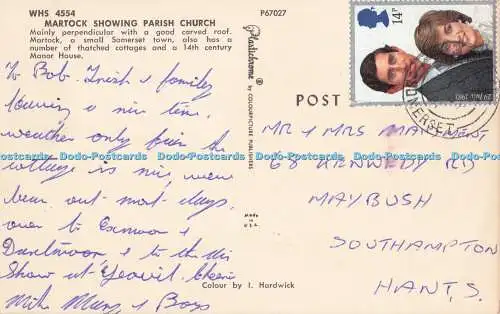 WHS 4554
P67027
MARTOCK SHOWING PARISH CHURCH
Mainly perpendicular with a good carved roof.
Martock, a small Somerset town, also has a
number of thatched cottages and a 14th century
Manor House.
To Bob. Trish & family
Having a nice time,
weather only fair the
cottage is nice, were
bean out most days,
over to Exmoor &
Dartmoor & to the
Show at Yeovil. Cheerio
Mike Mary & Boys
Plastichrome ®
by COLOURPICTURE PUBLISHERS
MADE IN
U.S.A.
Colour by I. Hardwick
POST
14P
29 July 1981
SOMERSET
MR & MRS MAYMENT
68 KENNEDY RD
MAYBUSH
SOUTHAMPTON
HANTS,
Dodo-Postcards Dodo-Postcards Dodo-Postcards Dodo-Postcards Dodo-Postcards